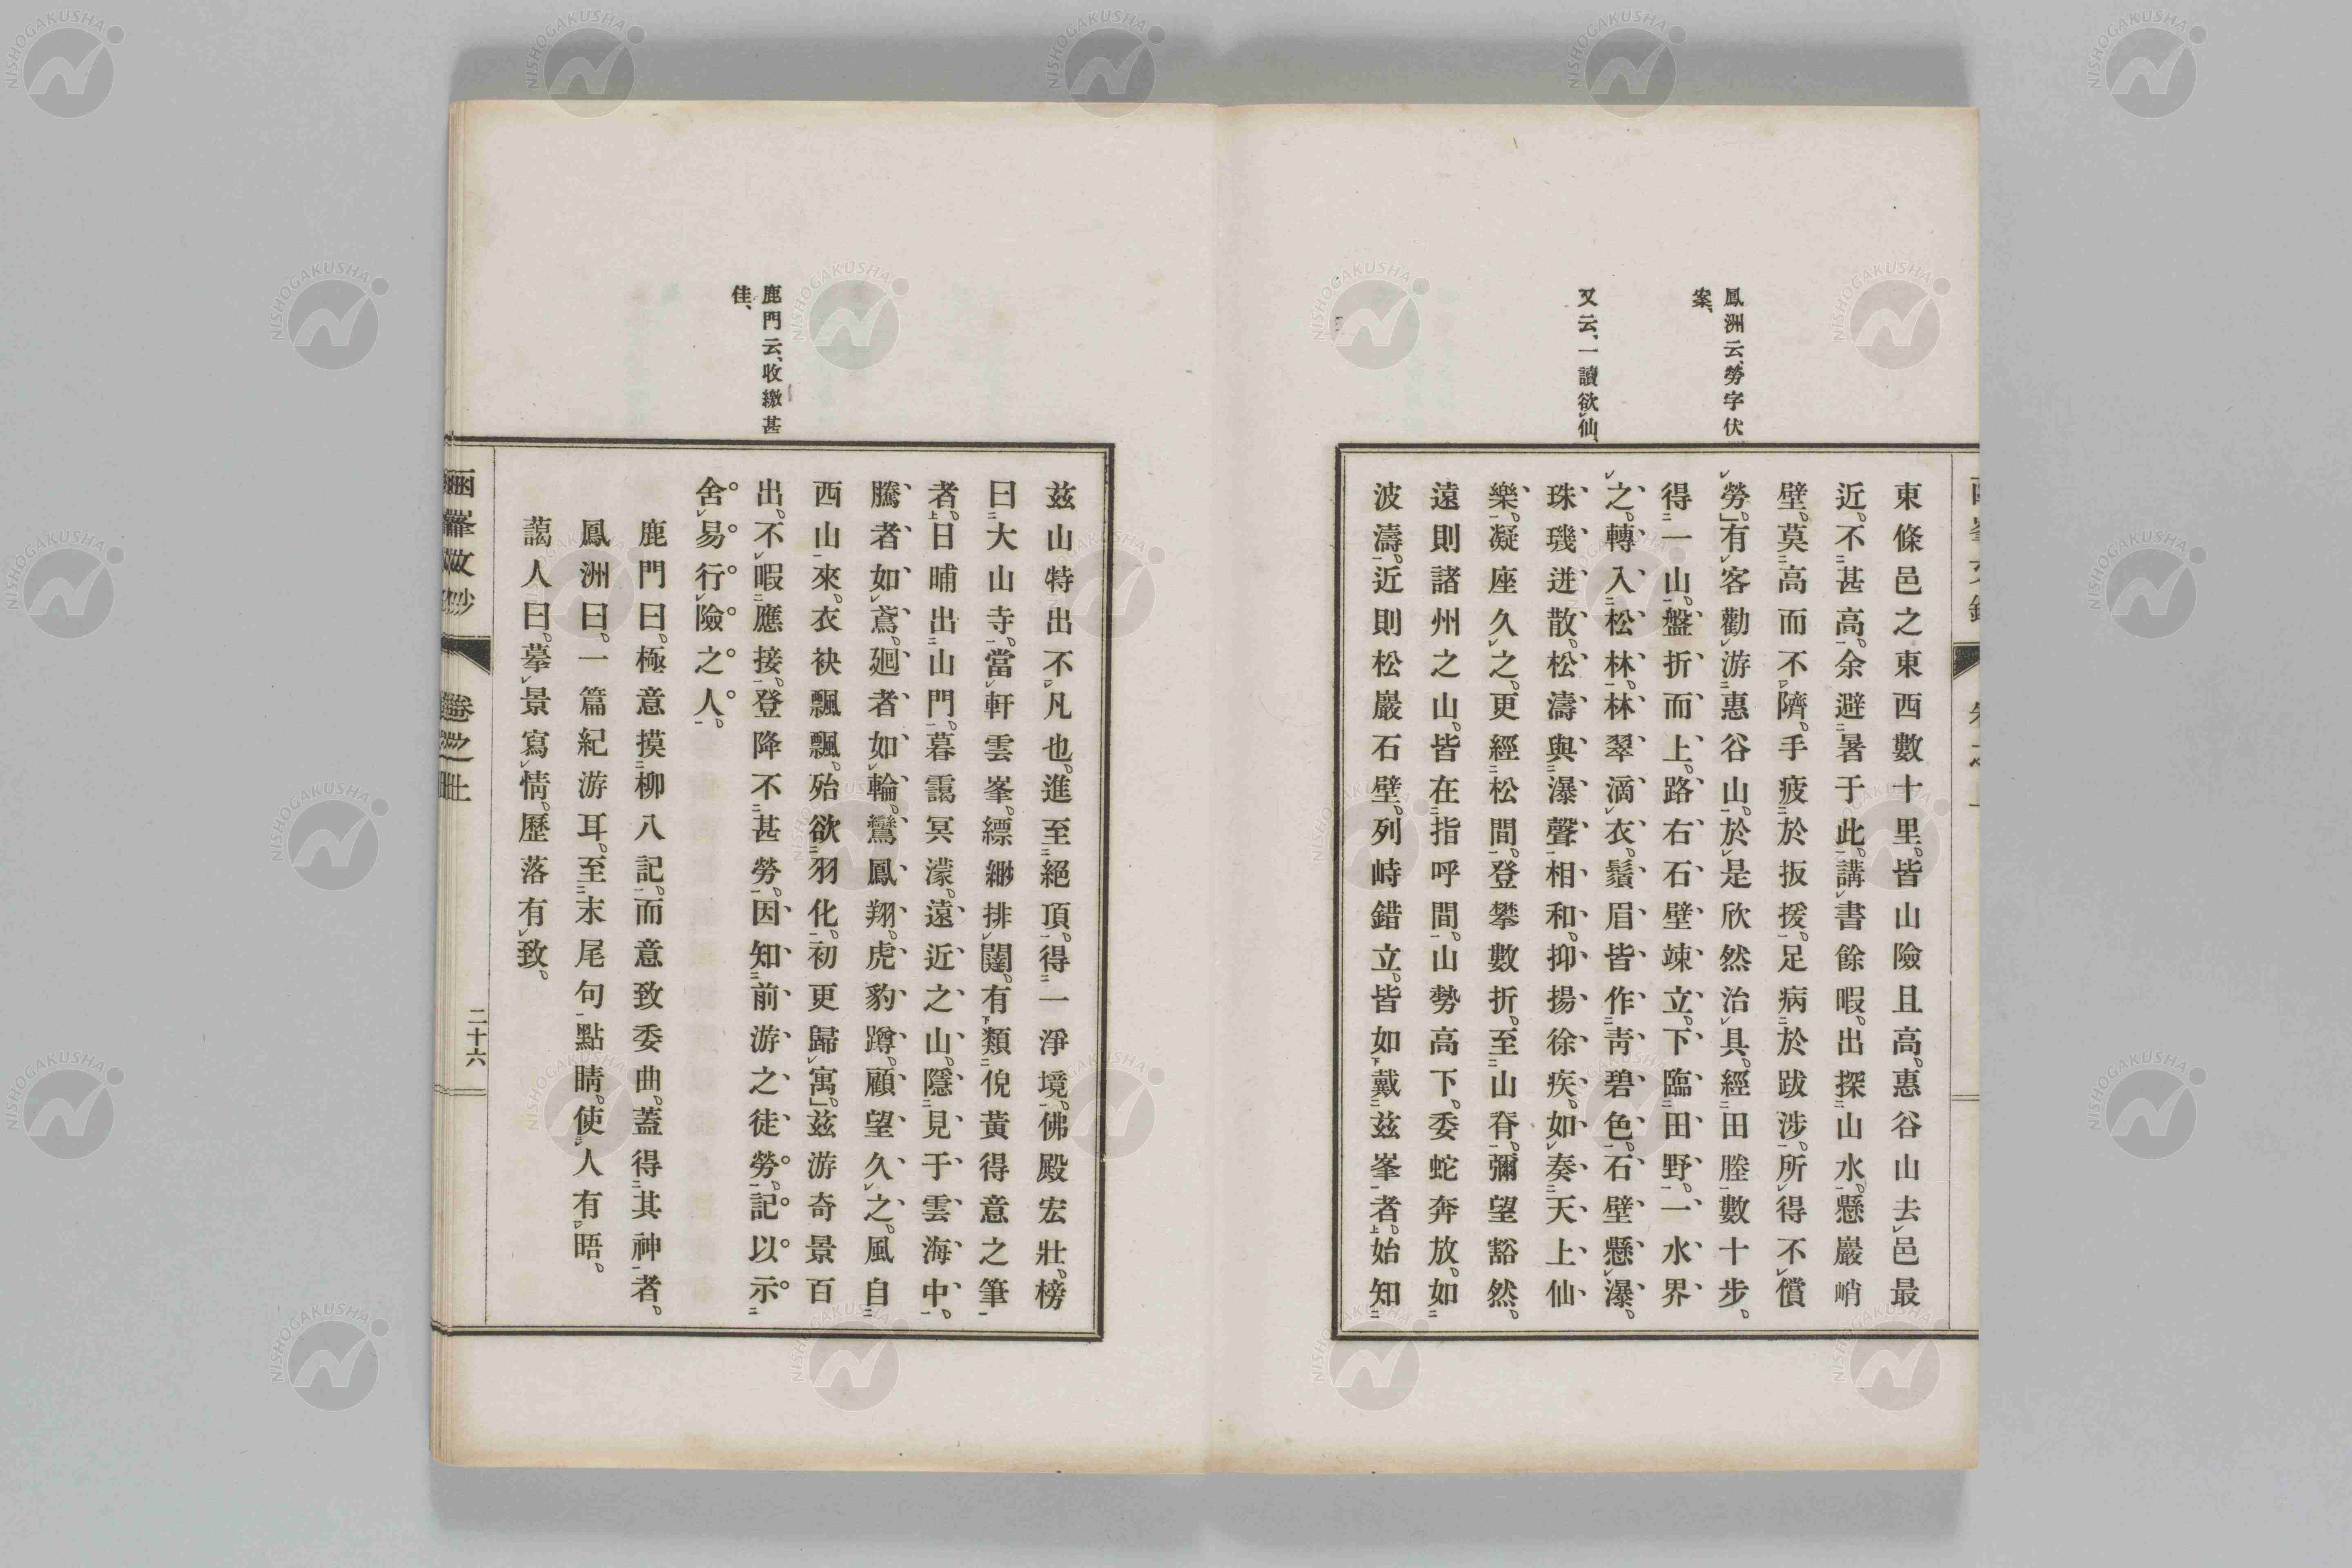 鳳洲云、勞字伏
案、
又云、一讀欲仙、
東條邑之東西數十里。皆山險且高。惠谷山去邑最
近。不甚高。余避暑于此。講書餘暇。出探山水。懸巖峭
壁。莫高而不隮。手疲於扳援。足病於跋涉。所得不償
勞。」有客勸游惠谷山。於是欣然治具。經田塍數十步。
得一山。盤折而上。路右石壁竦立。下臨田野。一水界
之。轉入松林。林翠滴衣。鬚眉皆作靑碧色。石壁懸瀑。
珠璣迸散。松濤與瀑聲相和。抑揚徐疾。如奏天上仙
樂。凝座久之。更經松間。登攀數折。至山脊。彌望豁然。
遠則諸州之山。皆在指呼間。山勢高下。委蛇奔放。如
波濤。近則松巖石壁。列峙錯立。皆如戴玆峯者。始知
鹿門云、收繳甚
佳、
玆山特出不凡也。進至絕頂。得一淨境。佛殿宏壯。榜
曰大山寺。當軒雲峯。縹緲排闥。有類倪黃得意之筆
者。日晡出山門。暮靄冥濛。遠近之山。隱見于雲海中。
騰者如鳶。廻者如輪。鸞鳳翔。虎豹蹲。顧望久之。風自
西山來。衣袂飄飄。殆欲羽化。初更歸寓。」玆游奇景百
出。不暇應接。登降不甚勞。因知前游之徒勞。記以示
舍易行險之人。
鹿門曰。極意摸柳八記。而意致委曲。蓋得其神者。
鳳洲曰。一篇紀游耳。至末尾句點睛。使人有晤。
藹人曰。摹景寫情。歷落有致。
卷之上
二十六